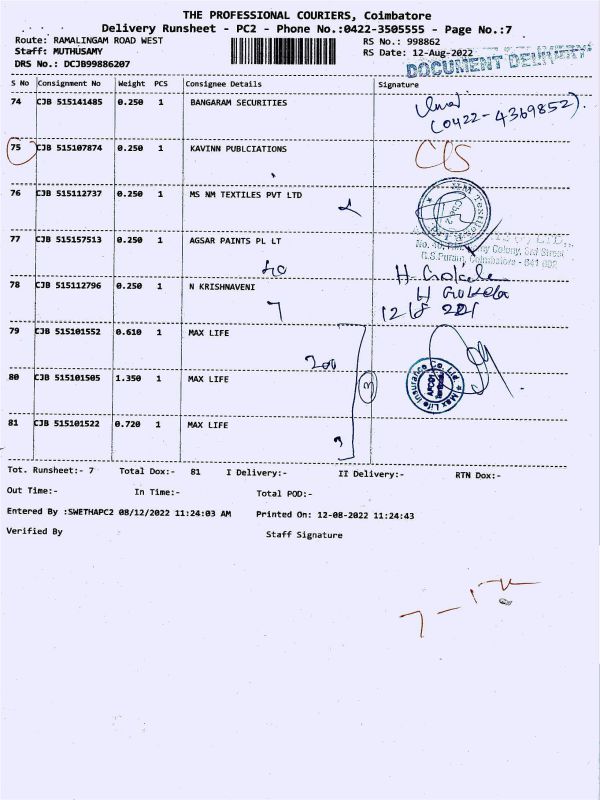 THE PROFESSIONAL COURIERS, Coimbatore
Delivery Runsheet - PC2 - Phone No.:0422-3505555 - Page No.:7
Route: RAMALINGAM ROAD WEST RS No.: 998862
Staff: MUTHUSAMY RS Date: 12-Aug-2022
DRS No.: DCJB99886207 DOCUMENT DELIVERY
S No Consignment No Weight PCS Consignee Details Signature
74 CJB 515141485 0.250 1 BANGARAM SECURITIES
(0422-4369852).
75 CJB 515107874 0.250 1 KAVINN PUBLCIATIONS
76 CJB 515112737 0.250 1 MS NM TEXTILES PVT LTD
77 CJB 515157513 0.250 1 AGSAR PAINTS PL LT
Colony, 3rd Street
G.S.Puram, Coimbatore - 641 002
78 CJB 515112796 0.250 1 N KRISHNAVENI
79 CJB 515101552 0.610 1 MAX LIFE
200
80 CJB 515101505 1.350 1 MAX LIFE 3
Max Life Insurance Co. Ltd.
81 CJB 515101522 0.720 1 MAX LIFE
Tot. Runsheet:- 7 Total Dox:- 81 I Delivery:- II Delivery:- RTN Dox:-
Out Time:- In Time:- Total POD:-
Entered By :SWETHAPC2 08/12/2022 11:24:03 AM Printed On: 12-08-2022 11:24:43
Verified By Staff Signature